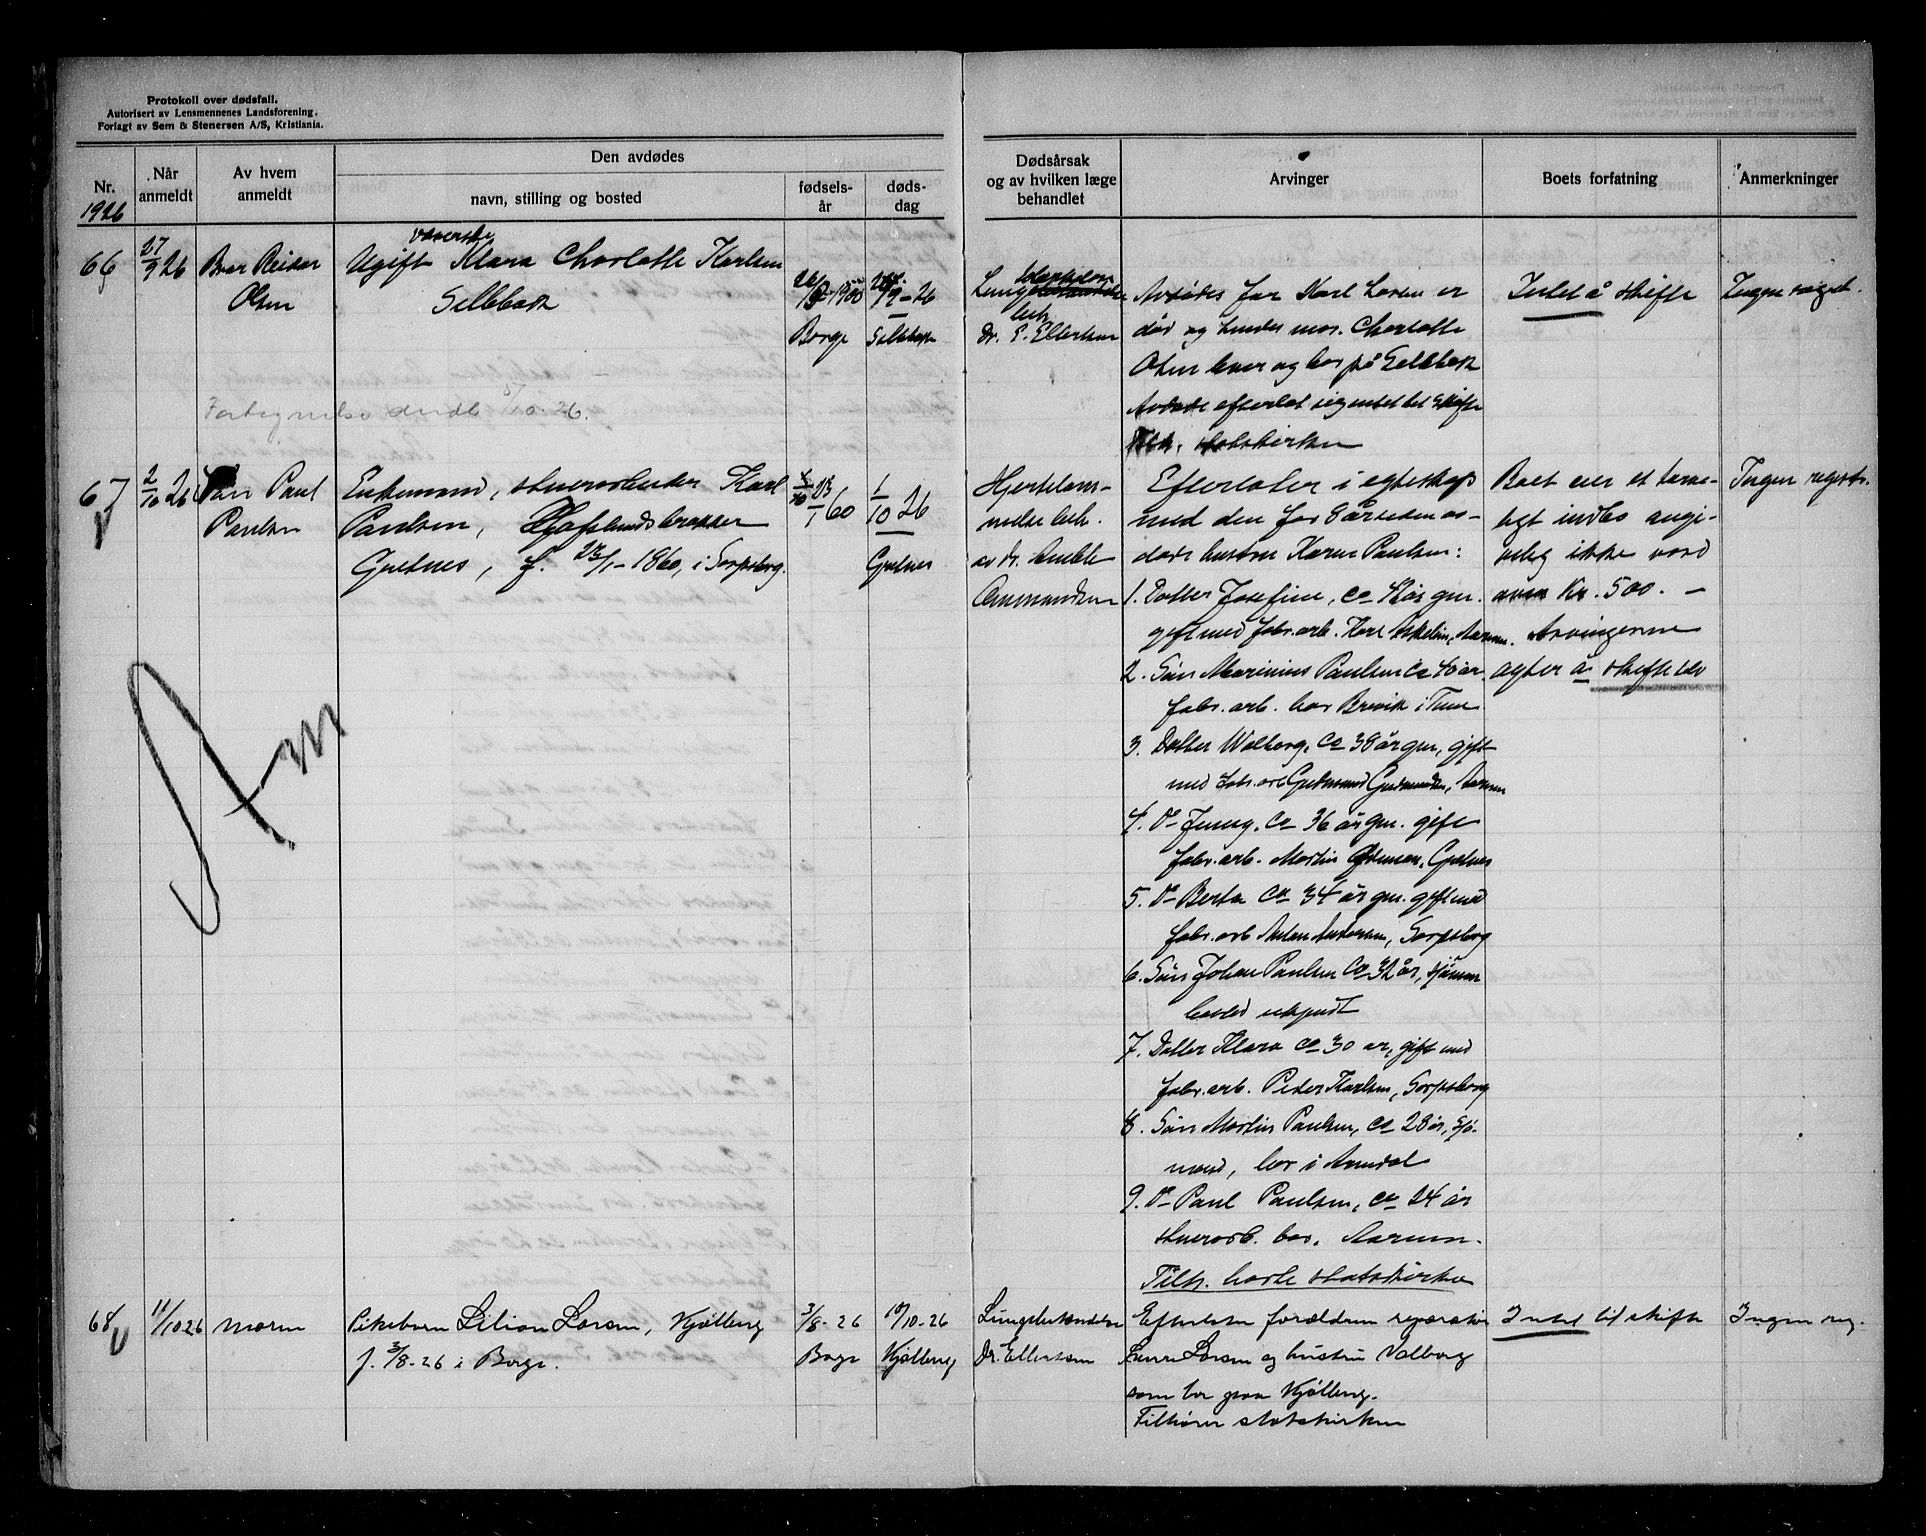 Protokoll over dødsfall.
Autorisert av Lensmennenes Landsforening.
Forlagt av Sem & Stenersen A/S, Kristiania.
Nr.
1926
Når
anmeldt
Av hvem
anmeldt
Den avdødes
navn, stilling og bosted
fødsels-
år
døds-
dag
Dødsårsak
og av hvilken læge
behandlet
Arvinger
Boets forfatning
Anmerkninger
66
27/9 26
Bror Reidar
Olsen
væverske
Ugift Klara Charlotte Karlsen
Sellebakk
1900
Borge
9-26
Sellebakk
Dr. E. Ellertsen
Avdødes far Karl Larsen er
død og hendes mor Charlotte
Olsen lever og bor på Sellebakk
Avdøde efterlot sig intet til skifte
statskirken
Intet å skifte
Ingen regist.
5/10-26.
67
2/10 26
Paul
Paulsen
Enkemand, stuerarbeider Karl
Paulsen,
Grelnes, f. 23/1-1860, i Sarpsborg.
23/1 60
1/10 26
Grelnes
Hjertelam-
melse beh.
av dr.
Ammundsen
Efterlater i egteskap
med den for 8 år siden av-
døde hustru Karen Paulsen:
1. Datter Josefine, ca 42 år gm.
gift med fabr. arb. Karl
2. Søn Marinius Paulsen ca 40 år
fabr. arb. bor Brevik i Tune
3. Datter Walborg, ca 38 år gm, gift
med fabr. arb Gudmund Gudmundsen,
4. Do Jenny, ca 36 år gm. gift
fabr. arb. Martin
5. Do Berta ca 34 år gm. gift med
fabr. arb Anton Andersen, Sarpsborg
6. Søn Johan Paulsen ca 32 år, sjømann
bosted ukjendt
7. Datter Klara ca 30 år, gift med
fabr. arb. Peder Karlsen, Sarpsborg
8. Søn Martin Paulsen, ca 28 år, sjø-
mand, bor i Arendal
9. Do Paul Paulsen, ca 24 år
stuerarb. bor,
Tilh. hørte statskirken
Boet eier et
indbo angi-
velig ikke værd
over Kr. 500. —
Arvingerne
agter å skifte selv
Ingen registr.
68
11/10 26
Moren
Pikebarn Lilian Larsen, Kjølberg
f. 3/8-26 i Borge.
3/8-26
Borge
10/10-26
Kjølberg
Lungebetændelse
Dr. Ellertsen
Efterlater forældrene reparatør
Larsen og hustru Valborg
som bor paa Kjølberg.
Tilhører statskirken
Intet til skifte
Ingen reg.